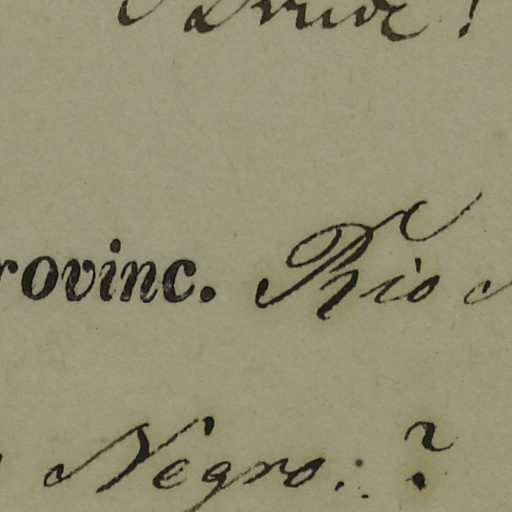 rovinc. Rio
Negro. ?